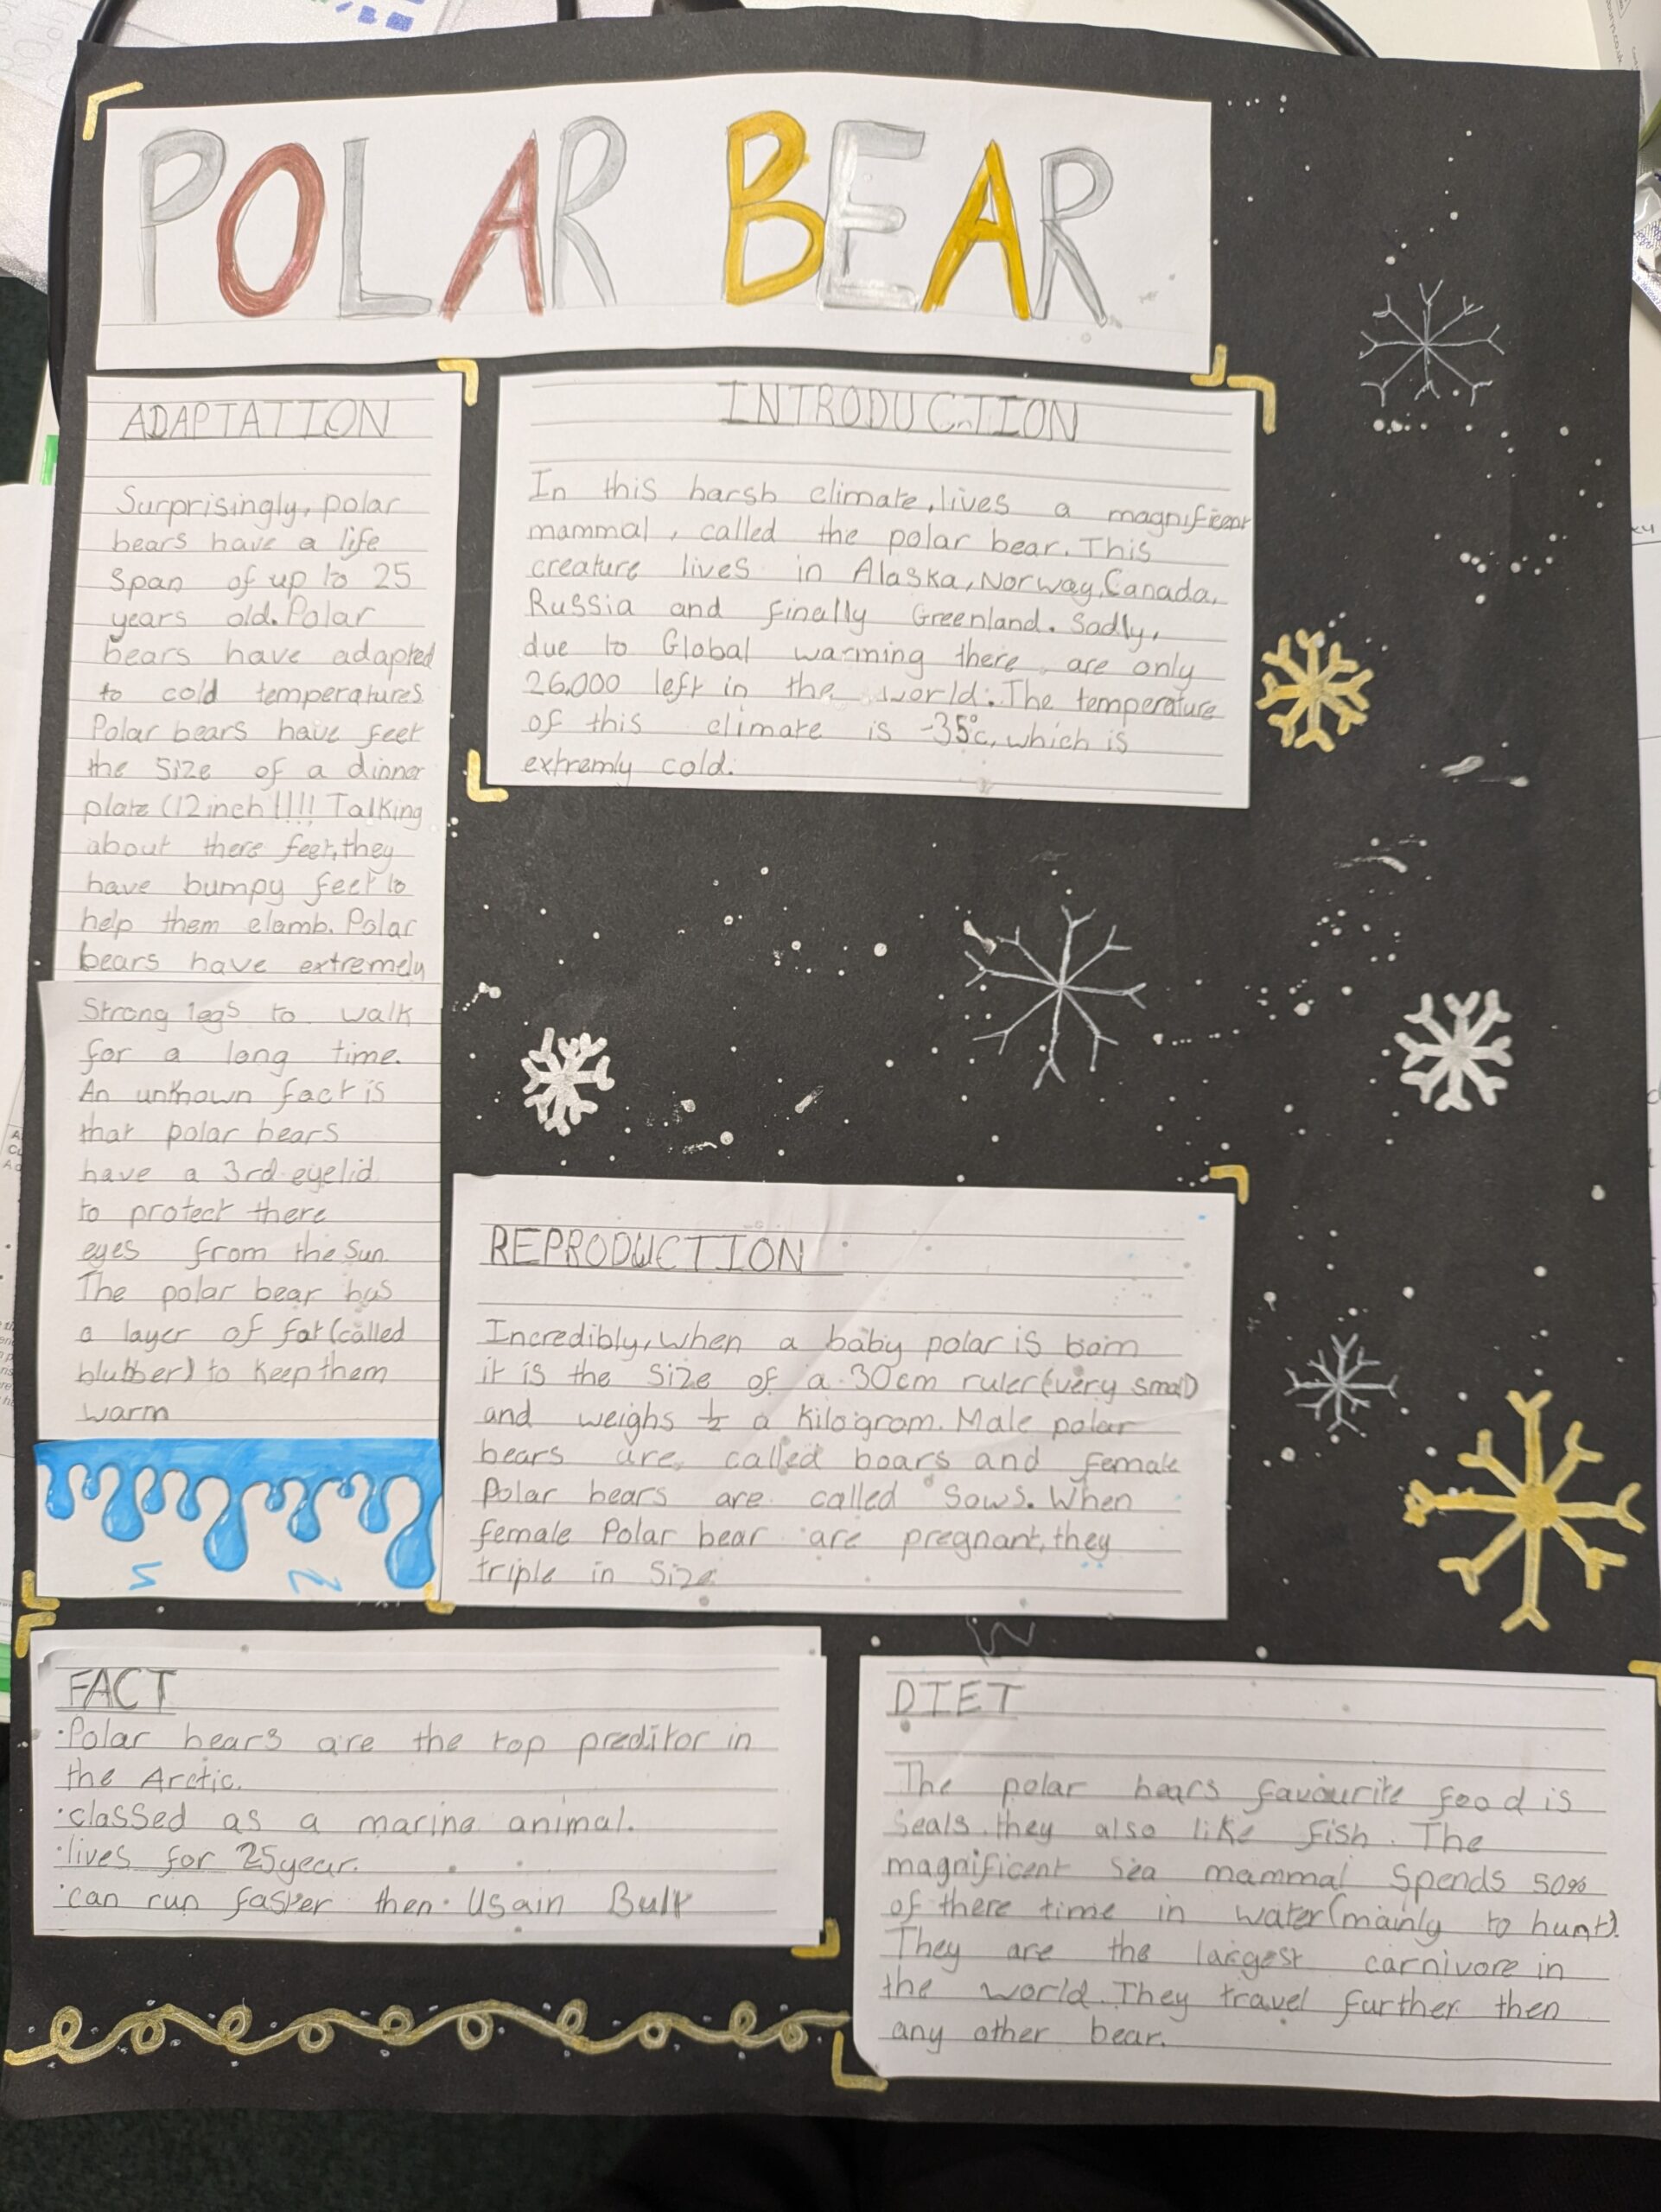 POLAR BEAR
ADAPTATION
Surprisingly, polar
bears have a life
span of up to 25
years old. Polar
bears have adapted
to cold temperatures.
Polar bears have feet
the size of a dinner
plate (12 inch !!!! Talking
about there feet, they
have bumpy feet to
help them clamb. Polar
bears have extremely
strong legs to walk
for a long time.
An unknown fact is
that polar bears
have a 3rd eyelid
to protect there
eyes from the sun.
The polar bear has
a layer of fat (called
blubber) to keep them
warm
INTRODUCTION
In this harsh climate, lives a magnificent
mammal, called the polar bear. This
creature lives in Alaska, Norway, Canada,
Russia and finally Greenland. Sadly,
due to Global warming there are only
26,000 left in the world. The temperature
of this climate is -35°c, which is
extremly cold.
REPRODUCTION
Incredibly, when a baby polar is born
it is the size of a 30cm ruler (very small)
and weighs ½ a kilogram. Male polar
bears are called boars and female
Polar bears are called sows. When
female Polar bear are pregnant, they
triple in size.
FACT
·Polar bears are the top preditor in
the Arctic.
·classed as a marine animal.
·lives for 25 year.
·can run faster then Usain Bult
DIET
The polar bears favourite food is
seals. they also like fish. The
magnificent sea mammal spends 50%
of there time in water (mainly to hunt).
They are the largest carnivore in
the world. They travel further then
any other bear.